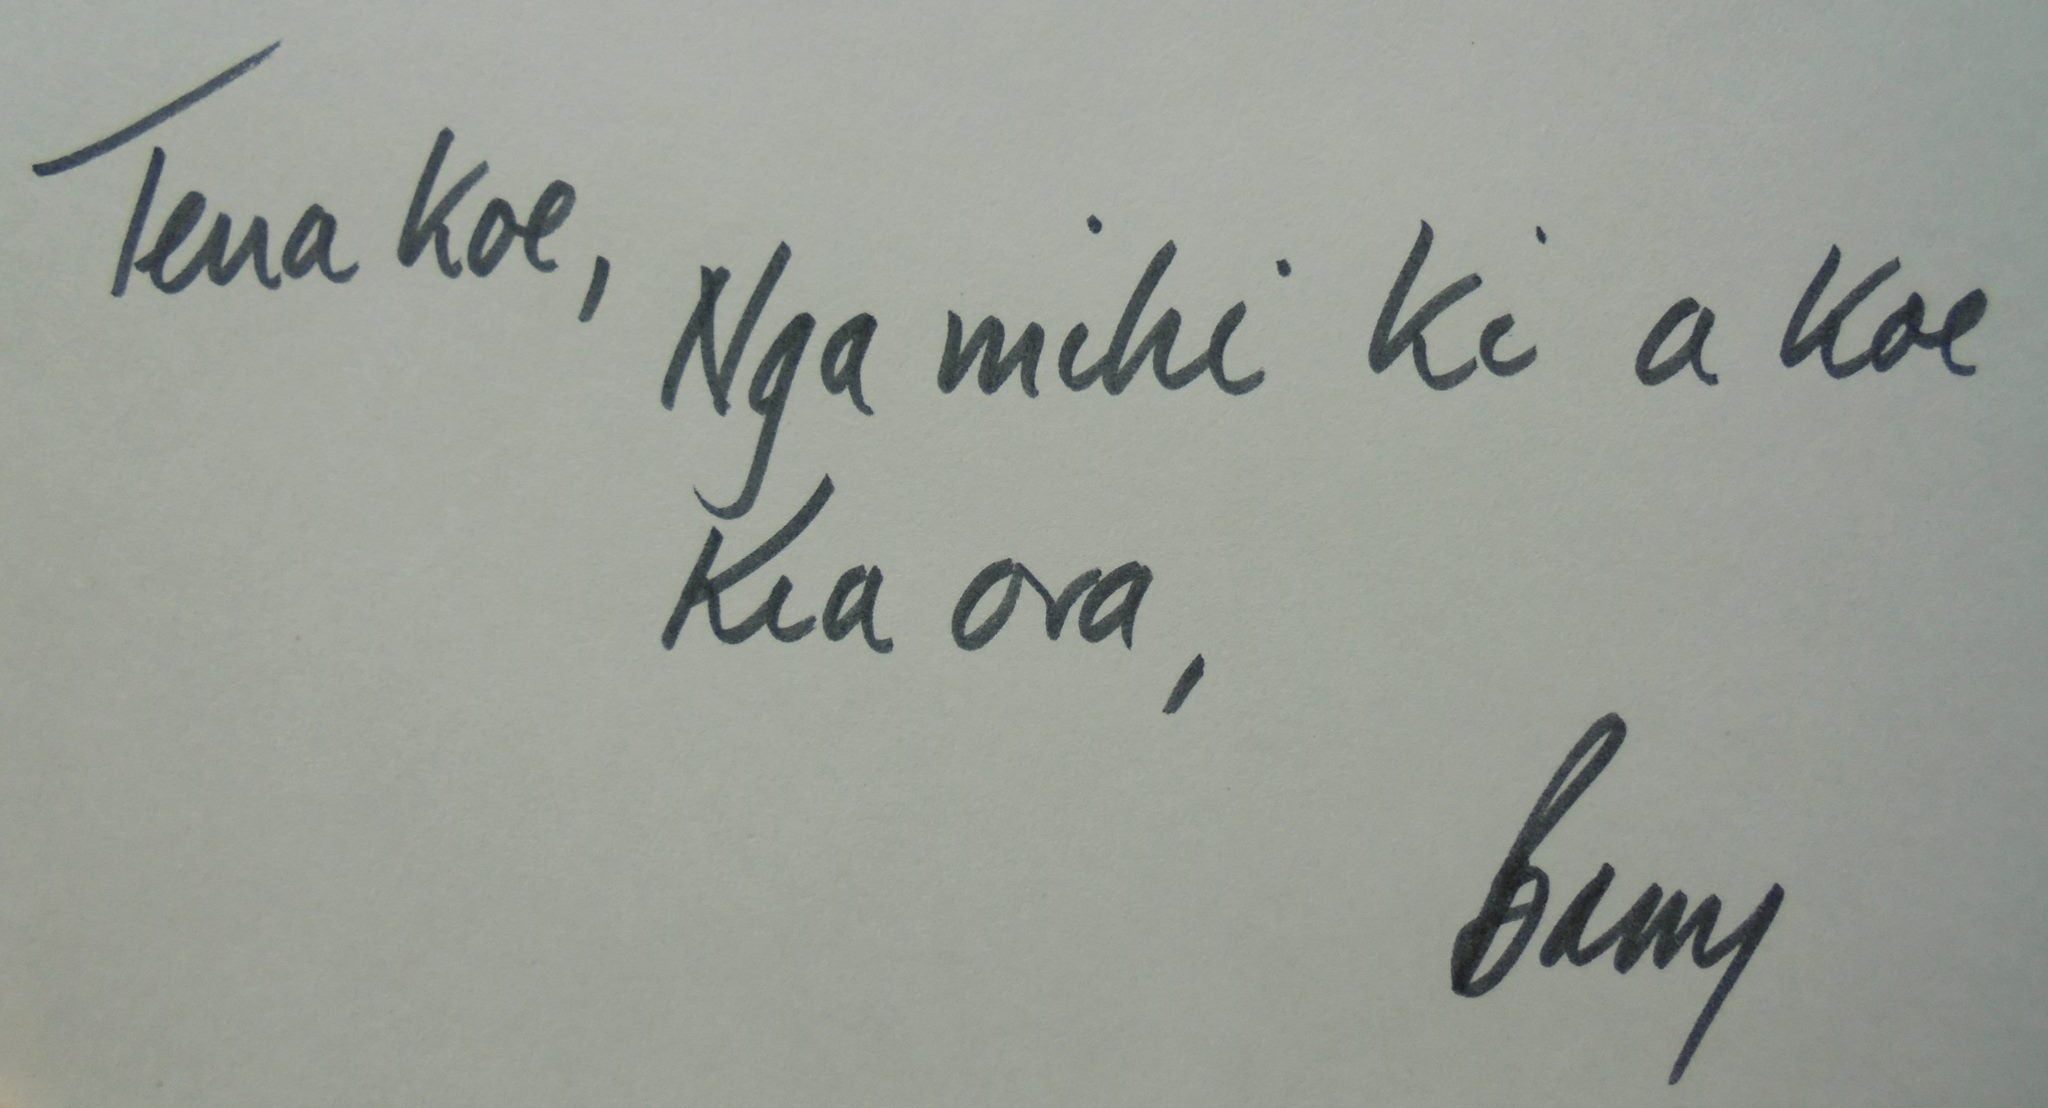 Tena koe,
Nga mihi ki a koe
Kia ora,
Barry